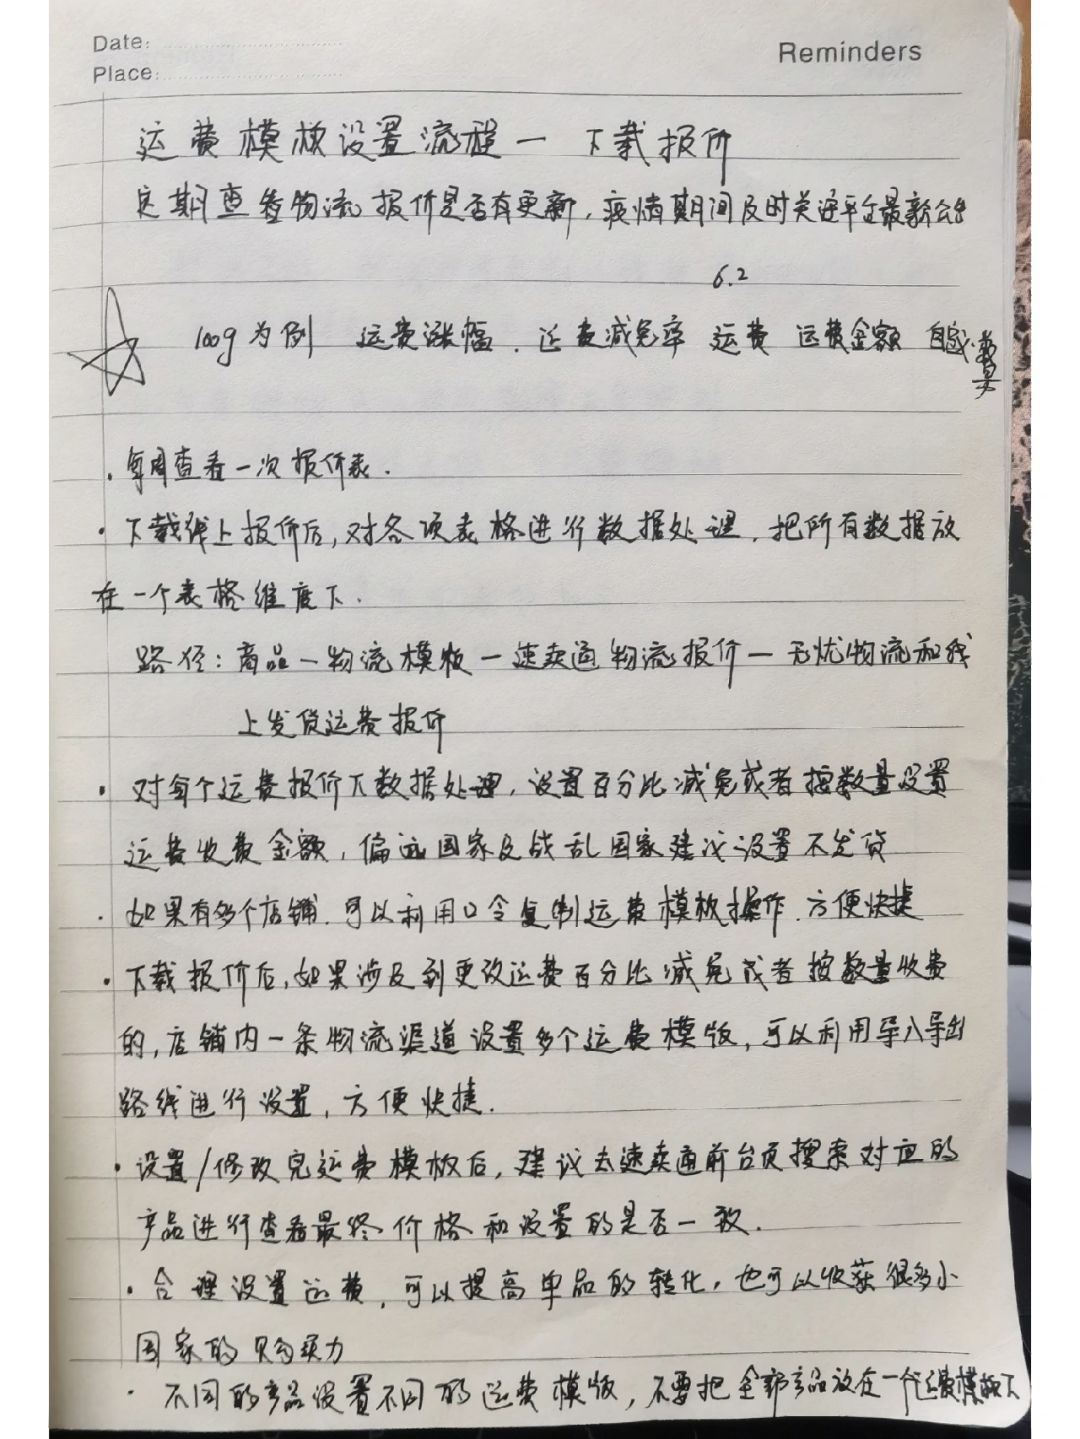 Date:
Place:
Reminders
运费模板设置流程一 下载报价
定期查看物流报价是否有更新，疫情期间及时关注平台最新公告
6.2
100g为例 运费涨幅．运费减免率 运费 运费金额 自己
·每周查看一次报价表．
·下载线上报价后，对各项表格进行数据处理，把所有数据放
在一个表格维度下．
路径：商品一物流模板一速卖通物流报价一无忧物流和线
上发货运费报价
·对每个运费报价下数据处理，设置百分比减免或者按数量设置
运费收费金额，偏远国家及战乱国家建议设置不发货
·如果有多个店铺．可以利用口令复制运费模板操作．方便快捷
·下载报价后，如果涉及到更改运费百分比减免或者按数量收费
的，店铺内一条物流渠道设置多个运费模版，可以利用导入导出
路线进行设置，方便快捷．
·设置/修改完运费模板后，建议去速卖通前台页搜索对应的
产品进行查看最终价格和设置的是否一致．
·合理设置运费，可以提高单品的转化，也可以收获很多小
国家的购买力
·不同的产品设置不同的运费模版，不要把全部产品放在一个运费模板下